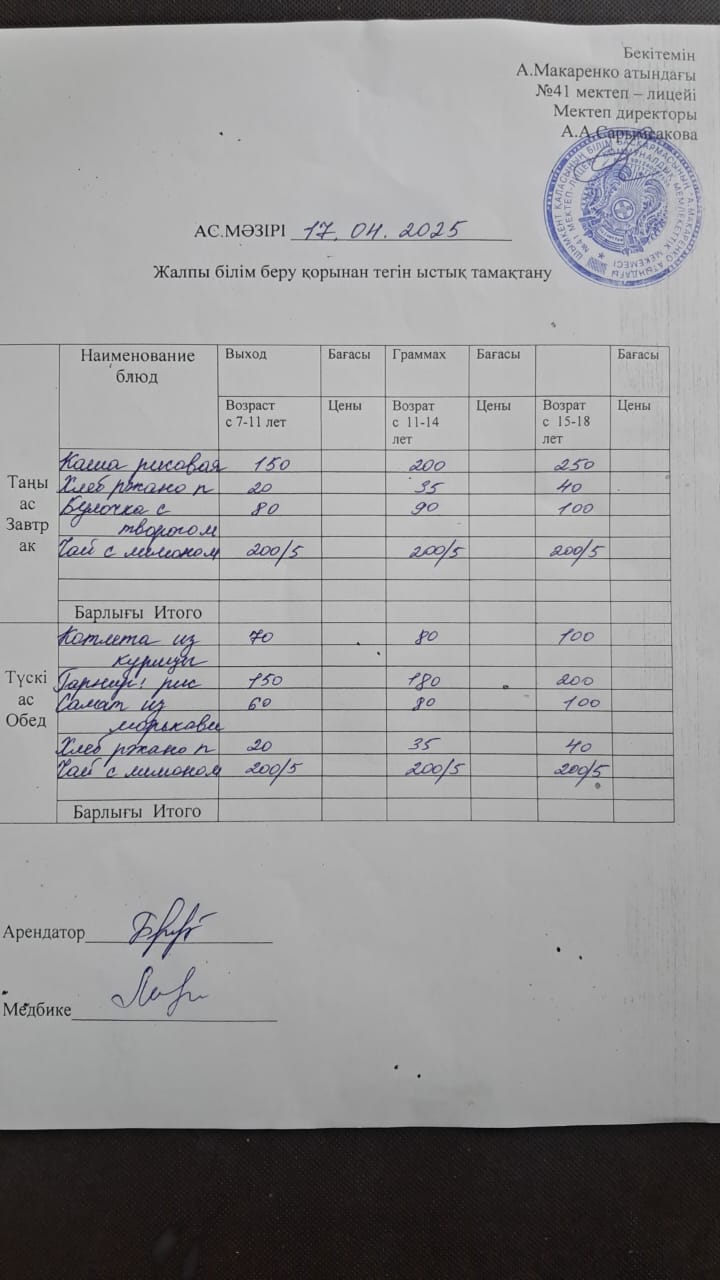 Бекітемін
А.Макаренко атындағы
№41 мектеп – лицейі
Мектеп директоры
А.А.Сарымсакова
АС.МӘЗІРІ 17.04.2025
Жалпы білім беру қорынан тегін ыстық тамақтану
Наименование блюд Выход Бағасы Граммах Бағасы Бағасы
Возраст с 7-11 лет Цены Возрат с 11-14 лет Цены Возрат с 15-18 лет Цены
Таңы ас Завтрак
Каша рисовая 150 200 250
Хлеб ржано п 20 35 40
Булочка с 80 90 100
творогом
Чай с лимоном 200/5 200/5 200/5
Барлығы Итого
Түскі ас Обед
Котлета из 70 80 100
курицы
Гарнир: рис 150 180 200
Салат из 60 80 100
моркови
Хлеб ржано п 20 35 40
Чай с лимоном 200/5 200/5 200/5
Барлығы Итого
Арендатор
Медбике